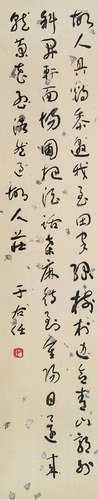 故人具雞黍邀我至田家綠樹村邊合青山郭外
斜開軒面場圃把酒話桑麻待到重陽日還來
就菊花孟浩然過故人莊
于右任